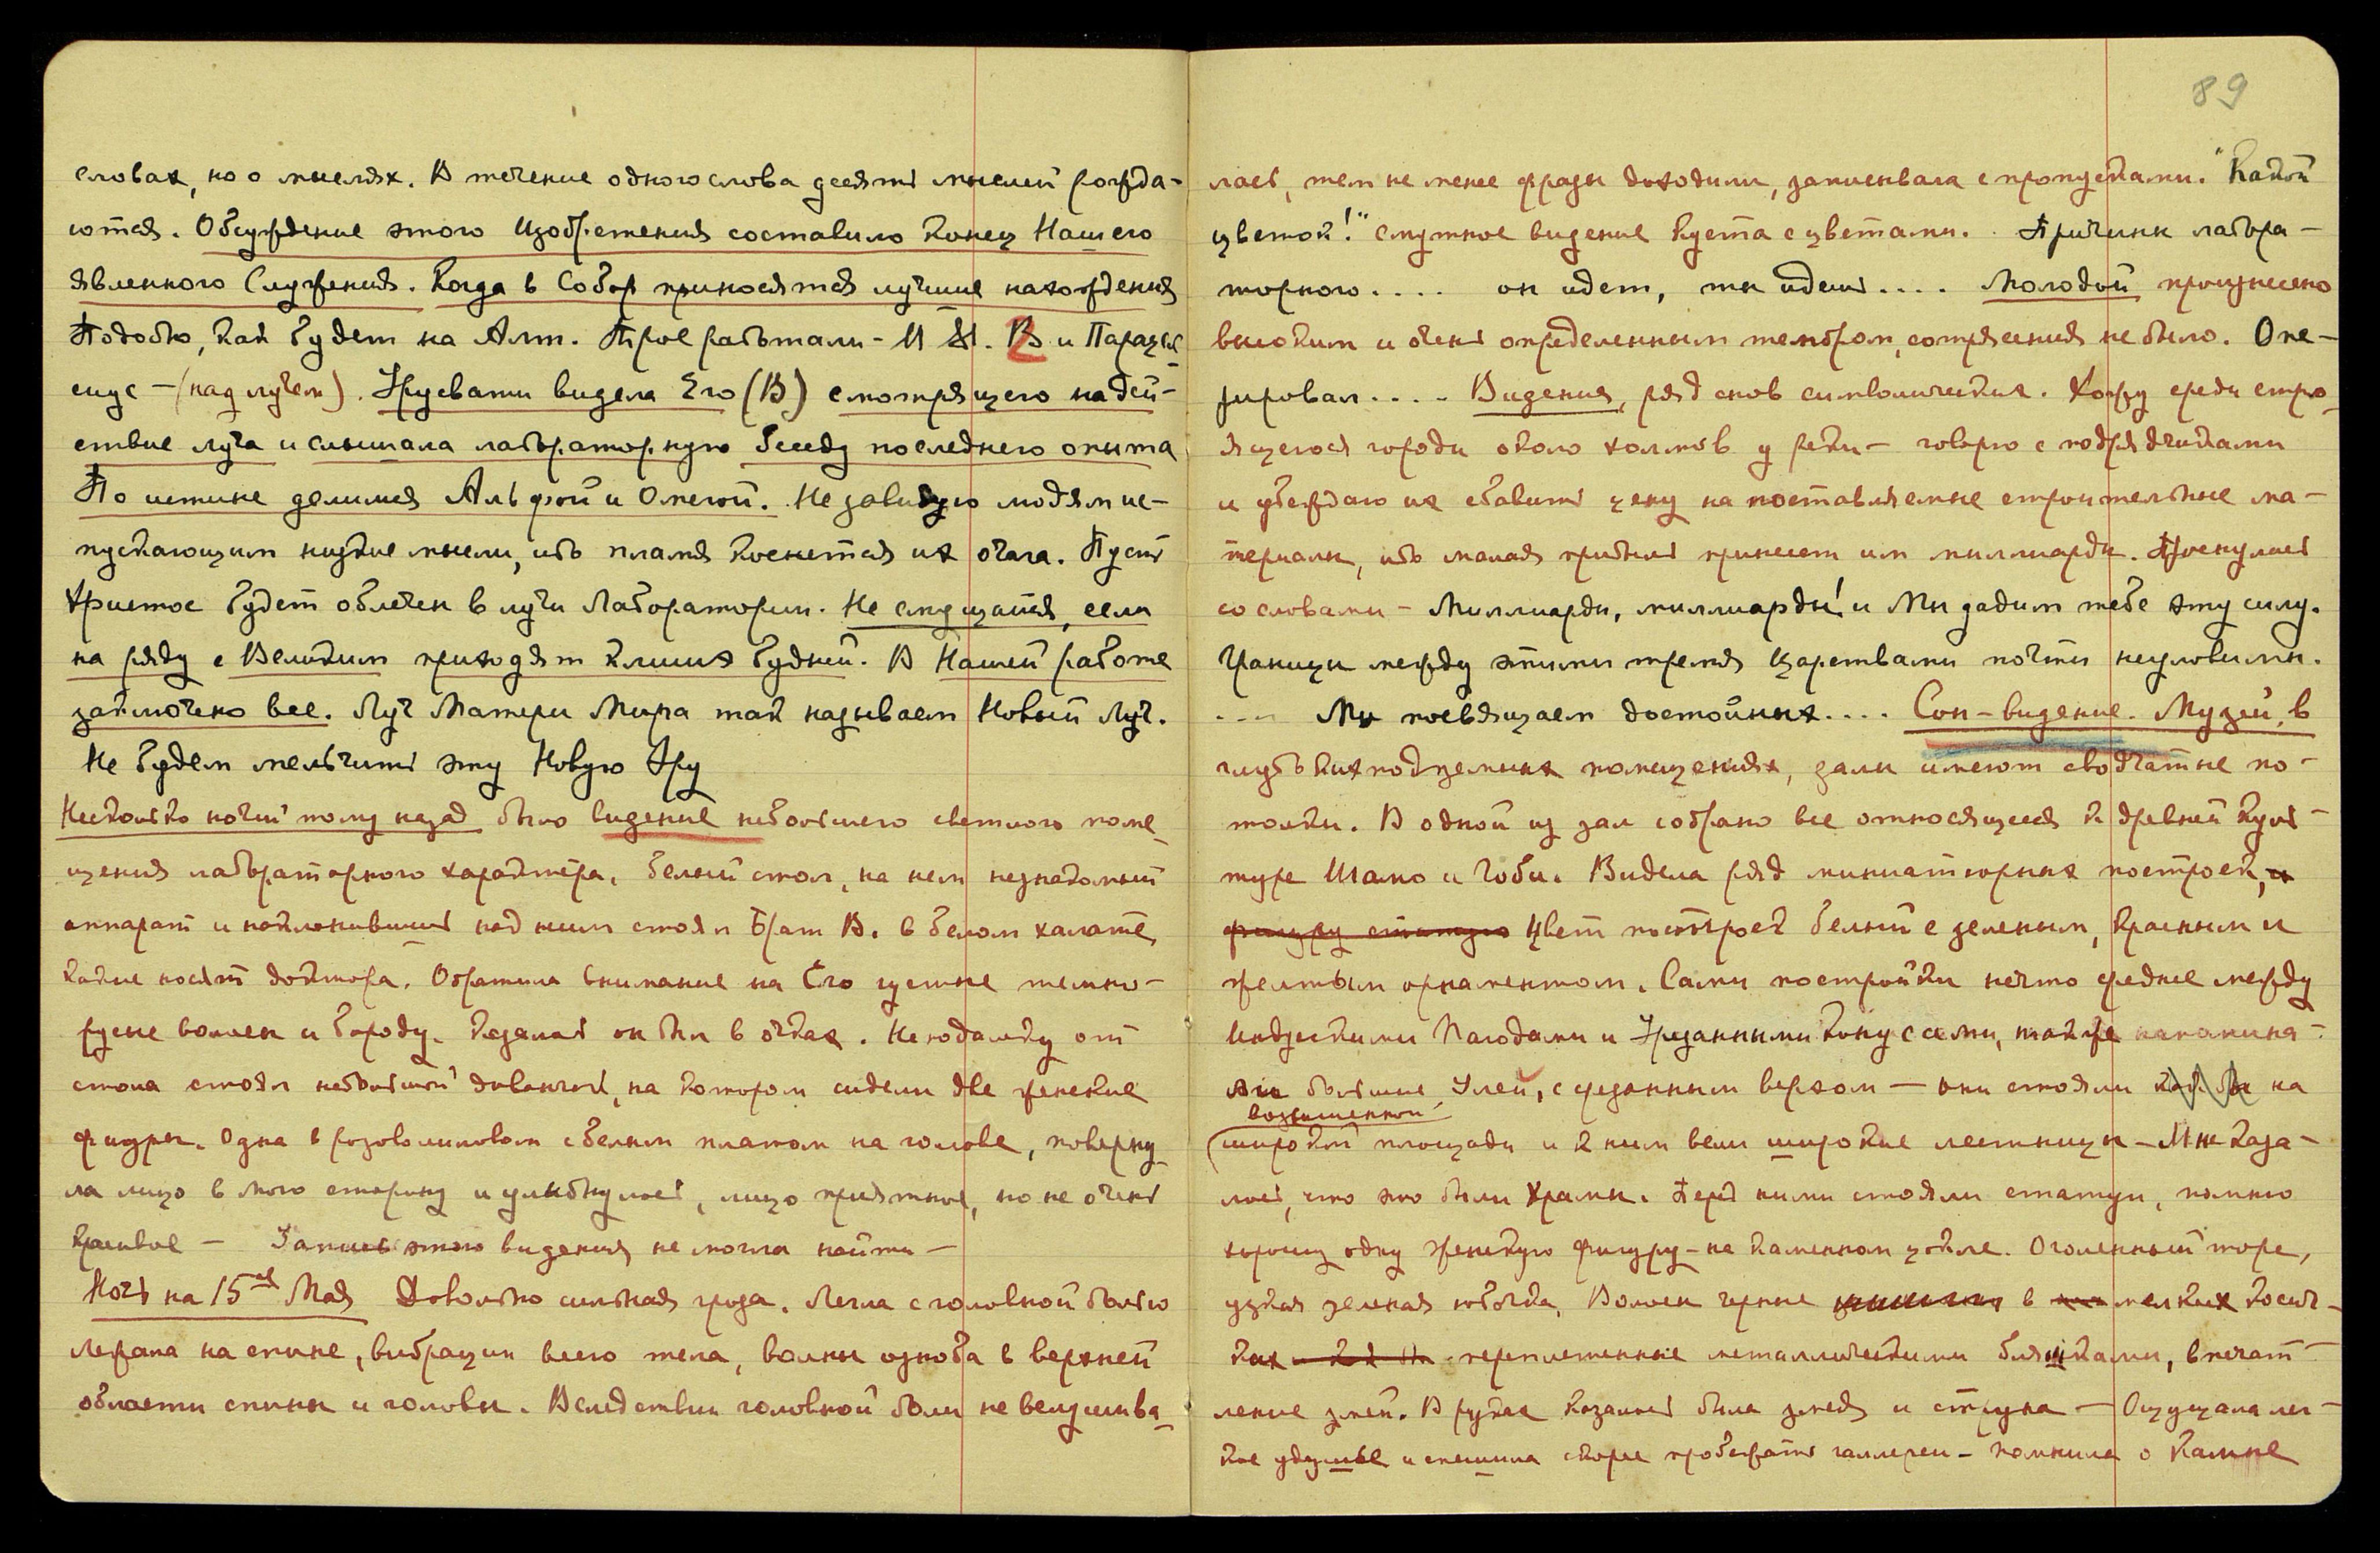 словах, но о мыслях. В течение одного слова десять мыслей рожда-
ются. Обсуждение этого Изобретения составило конец Нашего
явленного Служения. Когда в Собор приносятся лучшие нахождения
Подобно, как будет на Алт. Трое работали - И В и Парацел-
сиус - (над лучем). Урусвати видела Его (В) смотрящего на дей-
ствие луча и слышала лабораторную беседу последнего опыта
По истине делимся Альфой и Омегой. Не завидую людям ис-
пускающим низкие мысли, ибо пламя коснется их очага. Пусть
Христос будет облечен в лучи Лаборатории. Не смущайся, если
на ряду с Великим приходят клише будней. В Нашей работе
заключено все. Луч Матери Мира так называем Новый Луч.
Не будем мельчить эту Новую Эру
Несколько ночей тому назад было видение небольшого светлого поме-
щения лабораторного характера. Белый стол, на нем незнакомый
аппарат и наклонившись над ним стоял Брат В. в белом халате,
какие носят доктора. Обратила внимание на Его густые темно-
русые волосы и бороду. Казалось он был в очках. Неподалеку от
стола стоял небольшой диванчик, на котором сидели две женские
фигуры. Одна в розоволиловом с белым платом на голове, поверну-
ла лицо в мою сторону и улыбнулась, лицо приятное, но не очень
красивое - Запись этого видения не могла найти -
Ночь на 15ое Мая Довольно сильная гроза. Легла с головной болью
Лежала на спине, вибрации всего тела, волны озноба в верхней
области спины и головы. Вследствии головной боли не вслушива-
89
лась, тем не менее фразы доходили, записывала с пропусками. "Какой
цветок!" Смутное видение куста с цветами. Причины лабора-
торного.... он идет, ты идешь.... Молодой произнесено
высоким и очень определенным тембром, сотрясения не было. Опе-
рировал.... Видения, ряд снов символических. Хожу среди стро-
ящегося города около холмов у реки - говорю с подрядчиками
и убеждаю их сбавить цену на поставляемые строительные ма-
териалы, ибо малая прибыль принесет им миллиарды. Проснулась
со словами - Миллиарды, миллиарды! и Мы дадим тебе эту силу.
Границы между этими тремя Царствами почти неуловимы.
.... Мы посвящаем достойных.... Сон-видение. Музей, в
глубоких подземных помещениях, залы имеют сводчатые по-
толки. В одной из зал собрано все относящееся к древней куль-
туре Шамо и Гоби. Видела ряд миниатюрных построек, и
фигуру статую Цвет построек белый с зеленым, красным и
желтым орнаментом. Сами постройки нечто среднее между
Индусскими Пагодами и Урезанными Конусами, также напомина-
ли большие Улей, с срезанным верхом - они стояли как бы на
возвышенной
(широкой площади и к ним вели широкие лестницы - Мне каза-
лось, что это были Храмы. Перед ними стояли статуи, помню
хорошо одну женскую фигуру - на каменном цоколе. Оголенный торс,
узкая зеленая юбочка, Волосы черные в мелких косич-
ках переплетенные металлическими бляшками, впечат-
ление змей. В руках казалось была змея и струна - Ощущала лег-
кое удушье и спешила скорее пробежать галлереи - помнила о Камне